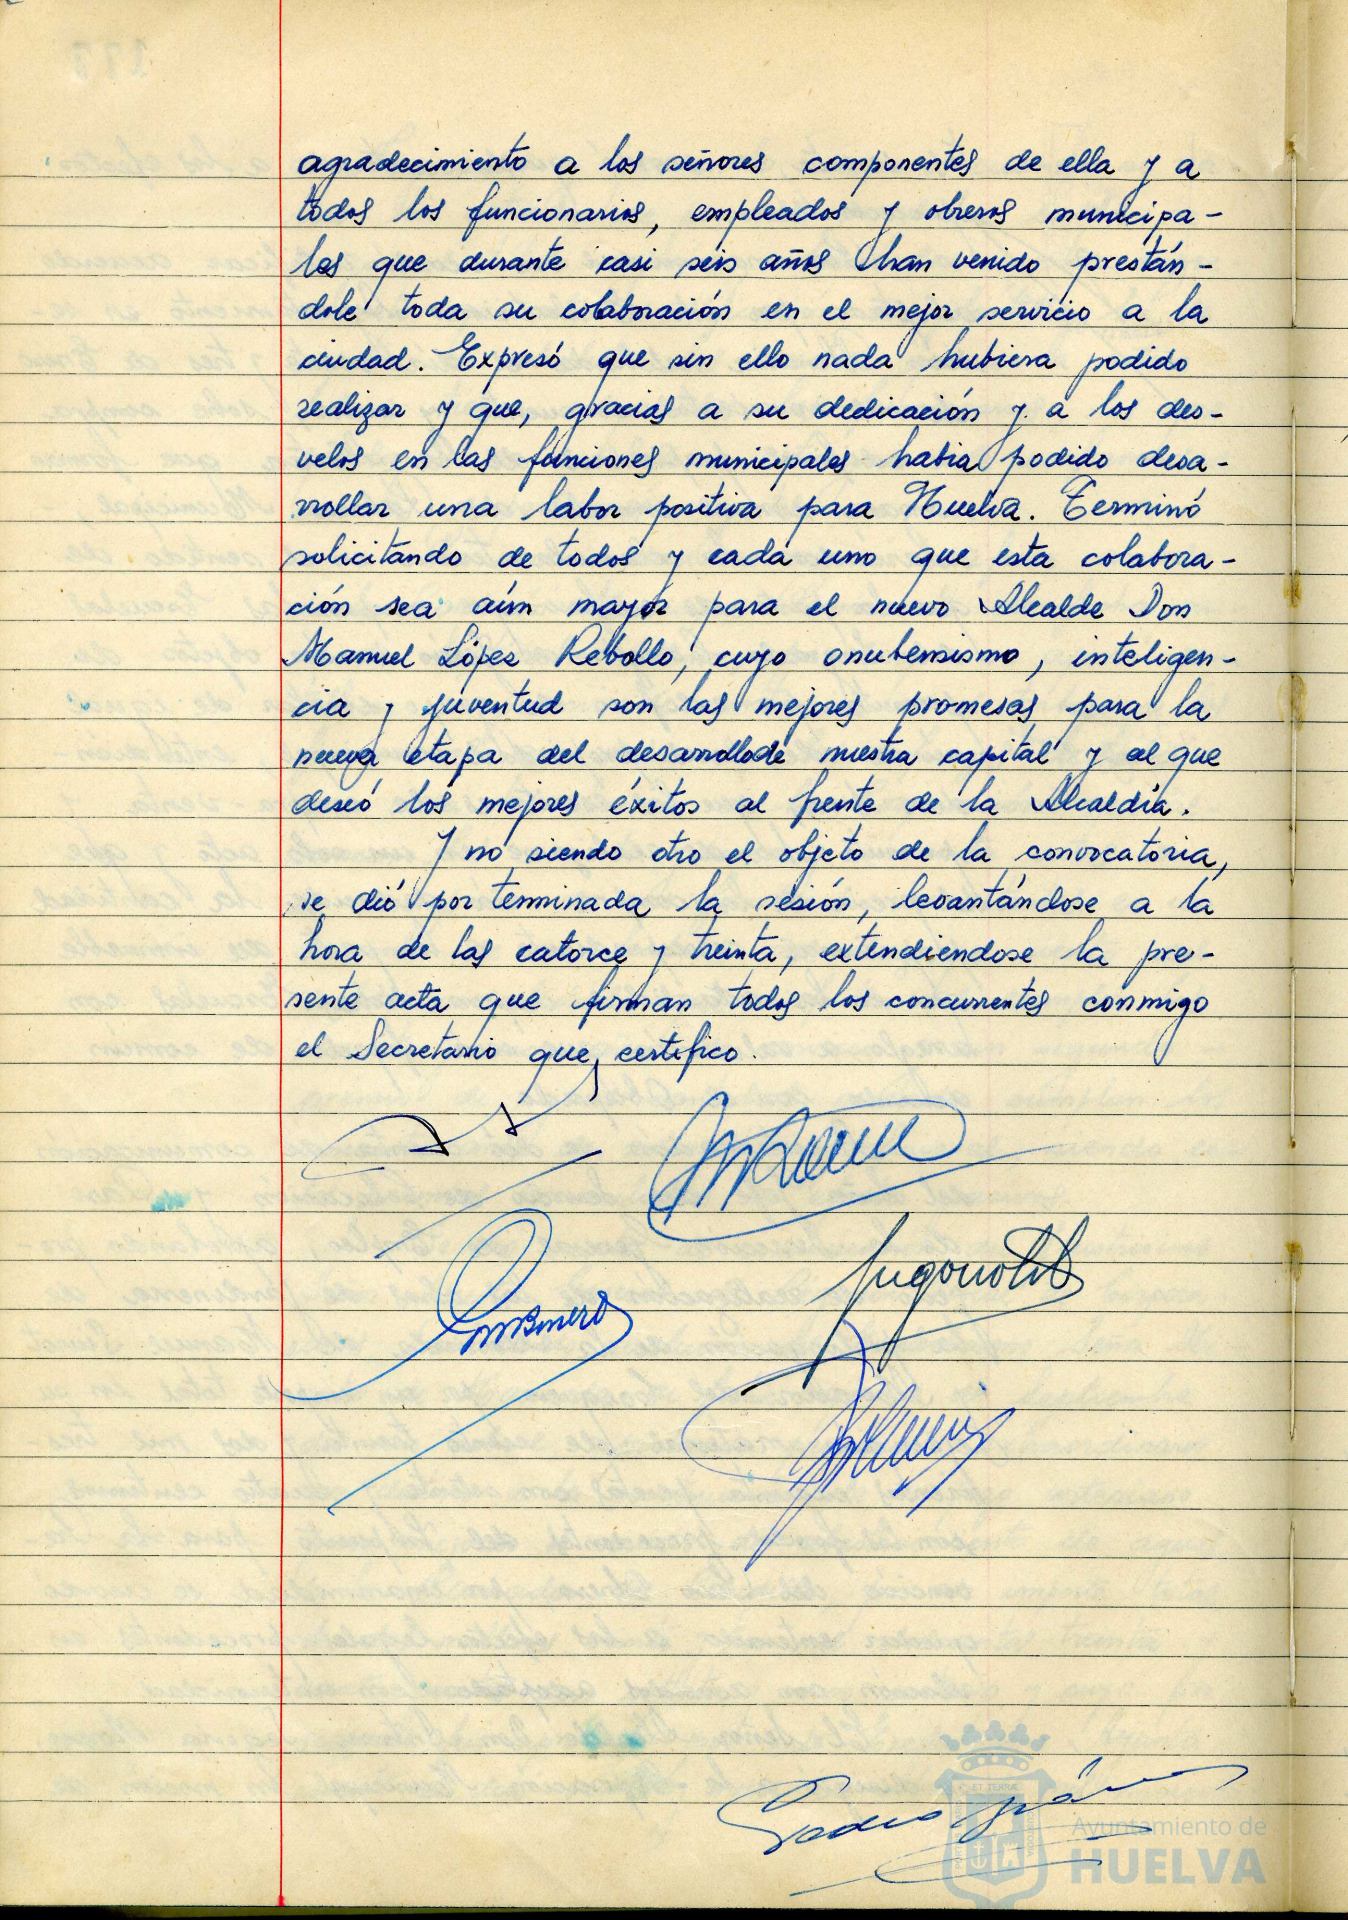 agradecimiento a los señores componentes de ella y a
todos los funcionarios, empleados y obreros municipa-
les que durante casi seis años han venido prestán-
dole toda su colaboración en el mejor servicio a la
ciudad. Expresó que sin ello nada hubiera podido
realizar y que, gracias a su dedicación y a los des-
velos en las funciones municipales habia podido desa-
rrollar una labor positiva para Huelva. Terminó
solicitando de todos y cada uno que esta colabora-
ción sea aún mayor para el nuevo Alcalde Don
Manuel López Rebollo, cuyo onubensismo, inteligen-
cia y juventud son las mejores promesas para la
nueva etapa del desarrollode nuestra capital y al que
deseó los mejores éxitos al frente de la Alcaldía.
Y no siendo otro el objeto de la convocatoria,
se dió por terminada la sesión, levantándose a la
hora de las catorce y treinta, extendiendose la pre-
sente acta que firman todos los concurrentes conmigo
el Secretario que, certifico.
Ayuntamiento de
HUELVA